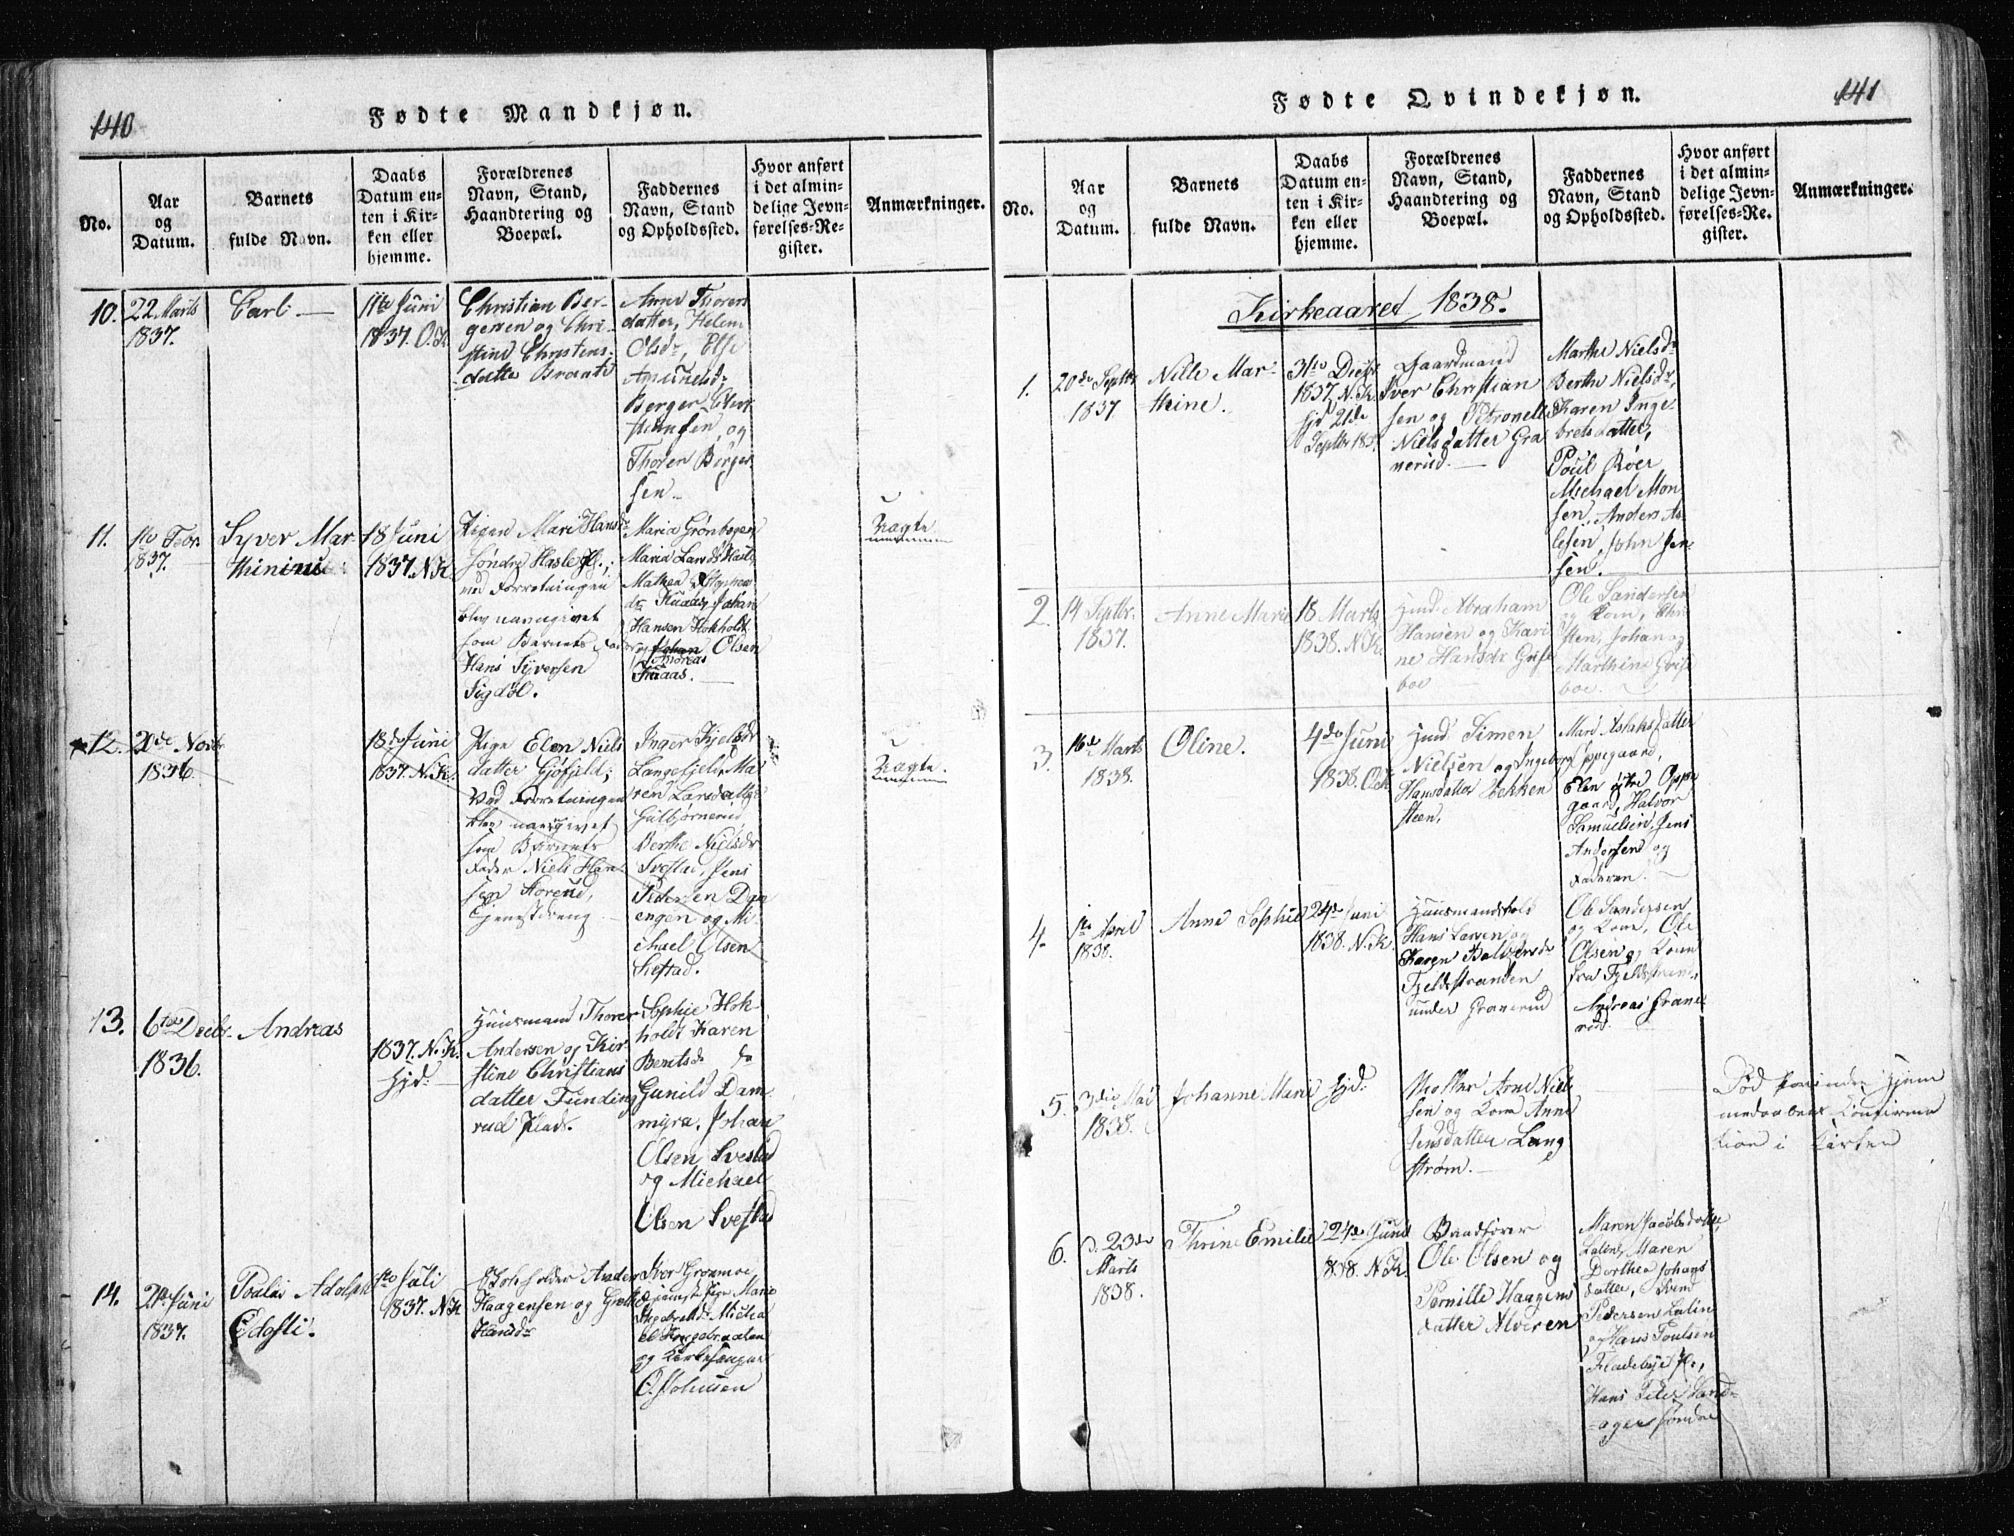 140
Fødte Mandkjøn.
No.
Aar
og
Datum.
Barnets
fulde Navn.
Daabs
Datum en-
ten i Kir-
ken eller
hjemme.
Forældrenes
Navn, Stand,
Haandtering og
Boepæl.
Faddernes
Navn, Stand
og Opholdssted.
Hvor anført
i det almin-
delige Jevn-
førelses-Re-
gister.
Anmærkninger.
10.
22 Marts
1837.
Carl.
11te Juni
1837. O.K
Christian Ber-
gersen og Chri-
stine Christens-
datter Brante
Anne Thores
datter, Helene
Olsdr, Else
Amundsdr
Berger Chri
stensen, og
Thoren Børger
sen.
11.
1te Febr.
1837.
Syver Mar
thinius
18 Juni
1837. N.K
Pigen Mari Hansdr
søndre Hasle Pl.;
ved Forretningen
blev navngivet
som Barnets Fader
Hans Syversen
Sigdøl.
Maria Grønbogen
Maria Larsdr Hasle
Mathea Stephens
dr Knaas, Johan
Hansen Hokholdt
og Johan Olsen
Andreas
Knaas.
Uægte
12.
2de Novbr
1836.
18de Juni
1837. N.K.
Pige Elen Niels
datter Gjøfjeld;
Ved Forretningen
blev navngivet
som Barnets
Fader Niels Han-
sen Storeud,
Tjenestdreng
Inger Kjelsdr
Langefjeld, Ma
ren Larsdatter
Gulbjørnerud,
Berthe Nielsdr
Svestad, Jens
Pedersen Dyp
engen og Mi-
chael Olsen
Svestad.
Uægte.
13.
6te Decbr.
1836.
Andreas
1837. N.K.
hjd.
Huusmand Thorer
Andersen og Kir-
stine Christians
datter Funding
rud Plads.
Sophie Hok-
holdt Karen
Berntsdr do
Gunild Dam
myra, Johan
Olsen Svestad
og Michael
Olsen Svestad
14.
2de Juni
1837.
Adolph
1te Juli
1837. N.K
Haagensen og
Hansdr
Iver Granmoe
og Kirkesanger
O. Johnsen
141
Fødte Qvindekjøn.
No.
Aar
og
Datum.
Barnets
fulde Navn.
Daabs
Datum en-
ten i Kir-
ken eller
hjemme.
Forældrenes
Navn, Stand,
Haandtering og
Boepæl.
Faddernes
Navn, Stand
og Opholdssted.
Hvor anført
i det almin-
delige Jevn-
førelses-Re-
gister.
Anmærkninger.
Kirkeaaret 1838.
1.
20de Septbr
1837
Nille Mar-
thine.
31te Decbr
1837. N.K.
hjd 21de
Septbr 1837
Gaardmand
Iver Christian
sen og Petronelle
Nielsdatter Gra
nerud.
Marthe Nielsdr
Berthe Nielsdr,
Karen Inge-
bretsdatter,
Poul Røer
Michael Mon
sen, Anders As-
lesen, John Jen
sen.
2.
14 Septbr.
1837.
Anne Marie
18 Marts
1838. N.K.
Huusmd Abraham
Hansen og Kari
ne Hansdr Grise
boe
Ole Sandersen
og Kone, Chri
sten, Johan og
Marthine Grise
boe.
3.
16de Marts
1838.
Oline.
4de Juni
1838. O.K
Huusmd Simen
Nielsen og Ingeborg
Hansdatter Bekken
steen.
Mari Aslaksdatter
Oppegaard,
Elen øvre Oppe
gaard, Halvor
Samuelsen, Jens
Andersen og
Faderen.
4.
1te April
1838.
Anne Sophie
24de Juni
1838. N.K.
Huusmandsfolk
Hans Larsen og
Karen Baltersdr
Fjeldstranden
under Granerud
Ole Sandersen
og Kone, Ole
Olsen og Kone
fra Fjeldstran.,
Andreas Grane
rud.
5.
3die Mai
1838.
Johanne Marie
hjd.
Arne Niel-
sen og Kone Anne
Jensdatter Lang
strøm.
Død forinden Hjem
medaabens Confirma
tion i Kirken
6.
d. 23de
Marts
1838.
Thrine Emilie
24de Juni
1838. N.K.
Ole Olsen og
Pernille Haagens
datter Alveren
Maren Jacobsdatter
Lalien, Maren
Dorthea Johans
datter, Svend
Pedersen Lalin
og Hans Poulsen
Fladebye Pl.,
Hans Peter Sand-
-ager søndre